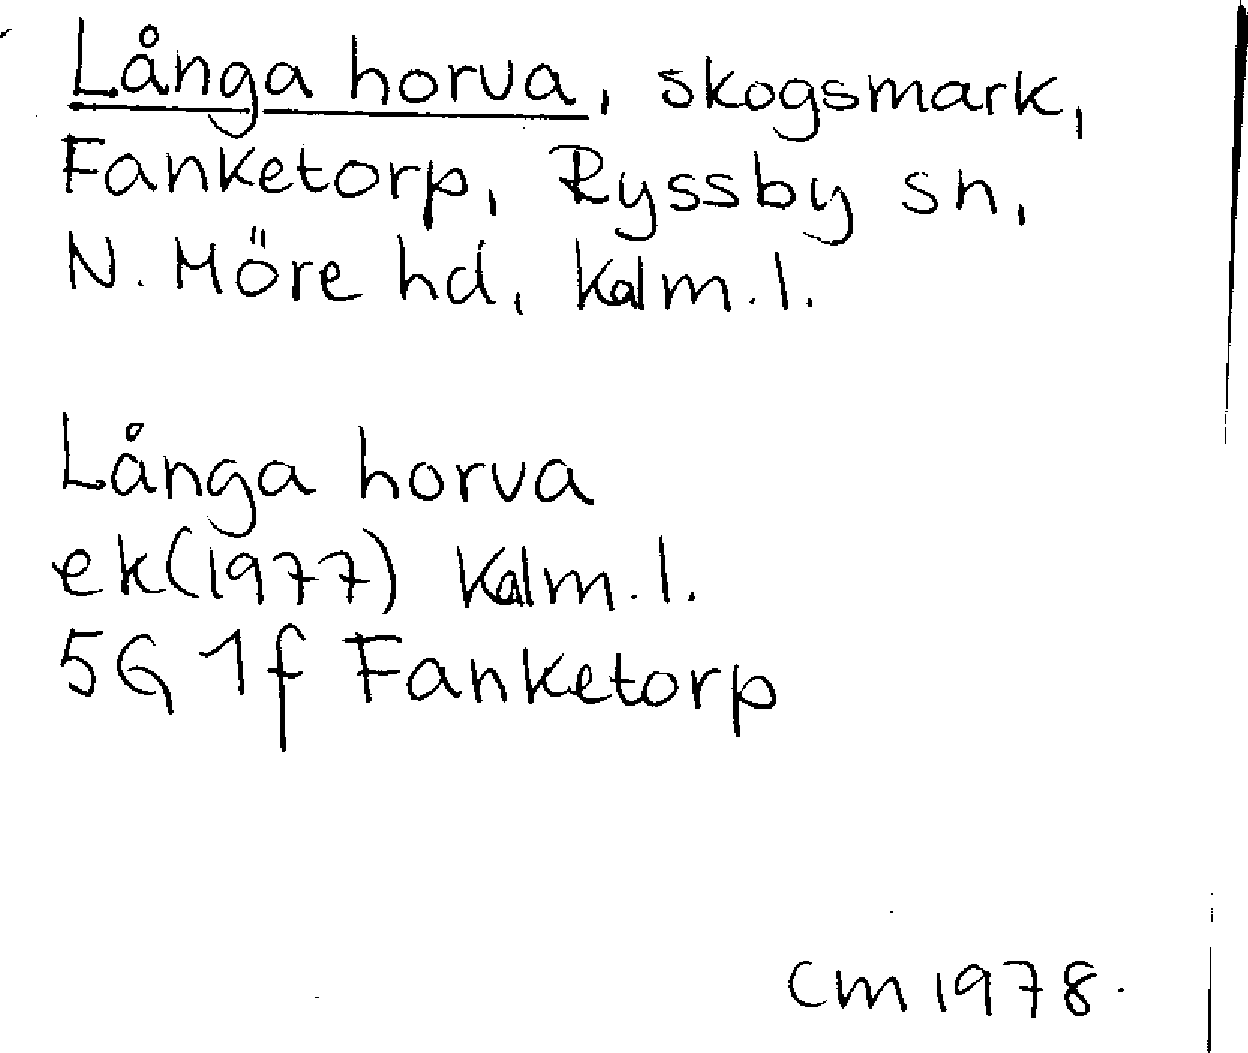 Långa horva, skogsmark,
Fanketorp, Ryssby sn,
N. Möre hd, Kalm. l.
Långa horva
ek (1977) Kalm. l.
5G 1f Fanketorp
CM 1978.